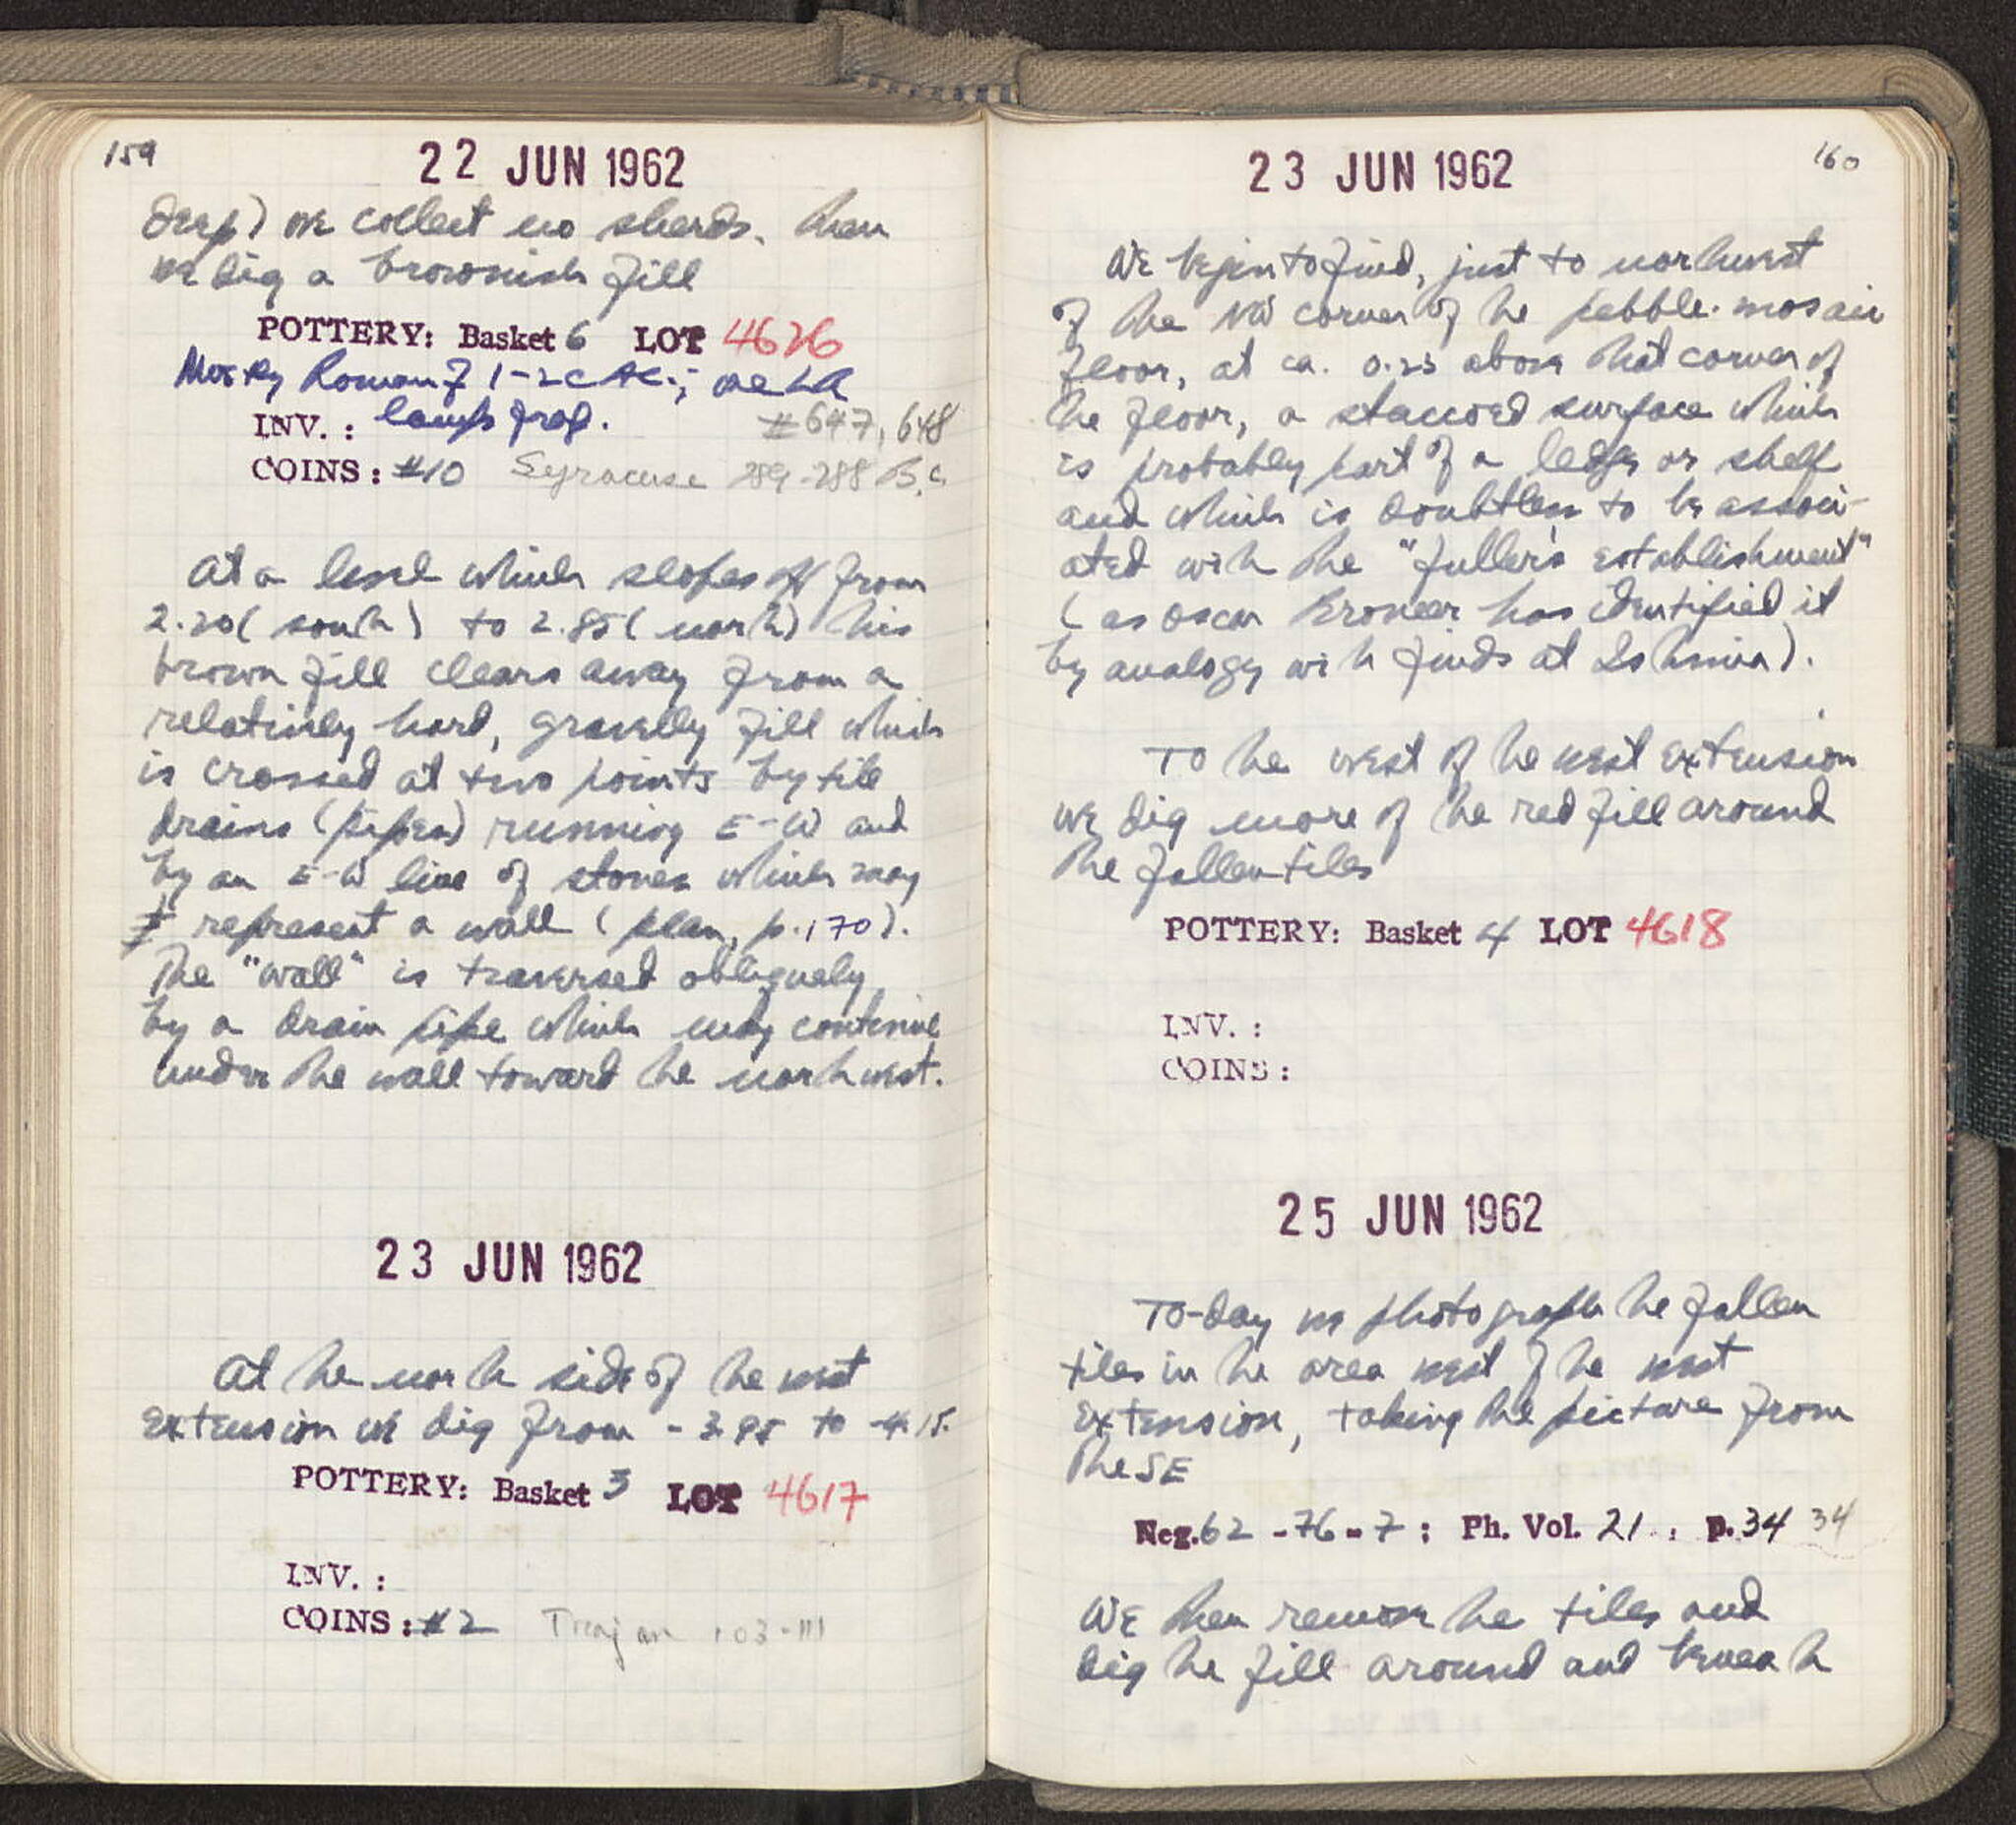 159
22 JUN 1962
deep) we collect no sherds. Then
we dig a brownish fill
POTTERY: Basket 6 LOT 4626
Mostly Roman of 1-2 c AC.; one LR
INV.: lamp frag. #647, 648
COINS: #10 Syracuse 289-288 B.C.
At a level which slopes off from
2.20 (south) to 2.85 (north) this
brown fill clears away from a
relatively hard, gravelly fill which
is crossed at two points by tile
drains (pipes) running E-W and
by an E-W line of stones which may
represent a wall (plan, p. 170).
The "wall" is traversed obliquely
by a drain pipe which may continue
under the wall toward the northwest.
23 JUN 1962
At the north side of the west
extension we dig from -3.95 to -4.15.
POTTERY: Basket 3 LOT 4617
INV.:
COINS: #2 Trajan 103-111
160
23 JUN 1962
We begin to find, just to northwest
of the NW corner of the pebble-mosaic
floor, at ca. 0.25 above that corner of
the floor, a stuccoed surface which
is probably part of a ledge or shelf
and which is doubtless to be associ-
ated with the "fuller's establishment"
(as Oscar Broneer has identified it
by analogy with finds at Isthmia).
To the west of the west extension
we dig more of the red fill around
the fallen tiles
POTTERY: Basket 4 LOT 4618
INV.:
COINS:
25 JUN 1962
To-day we photograph the fallen
tiles in the area west of the west
extension, taking the picture from
the SE
Neg. 62-76-7; Ph. Vol. 21, p. 34 34
We then remove the tiles and
dig the fill around and beneath